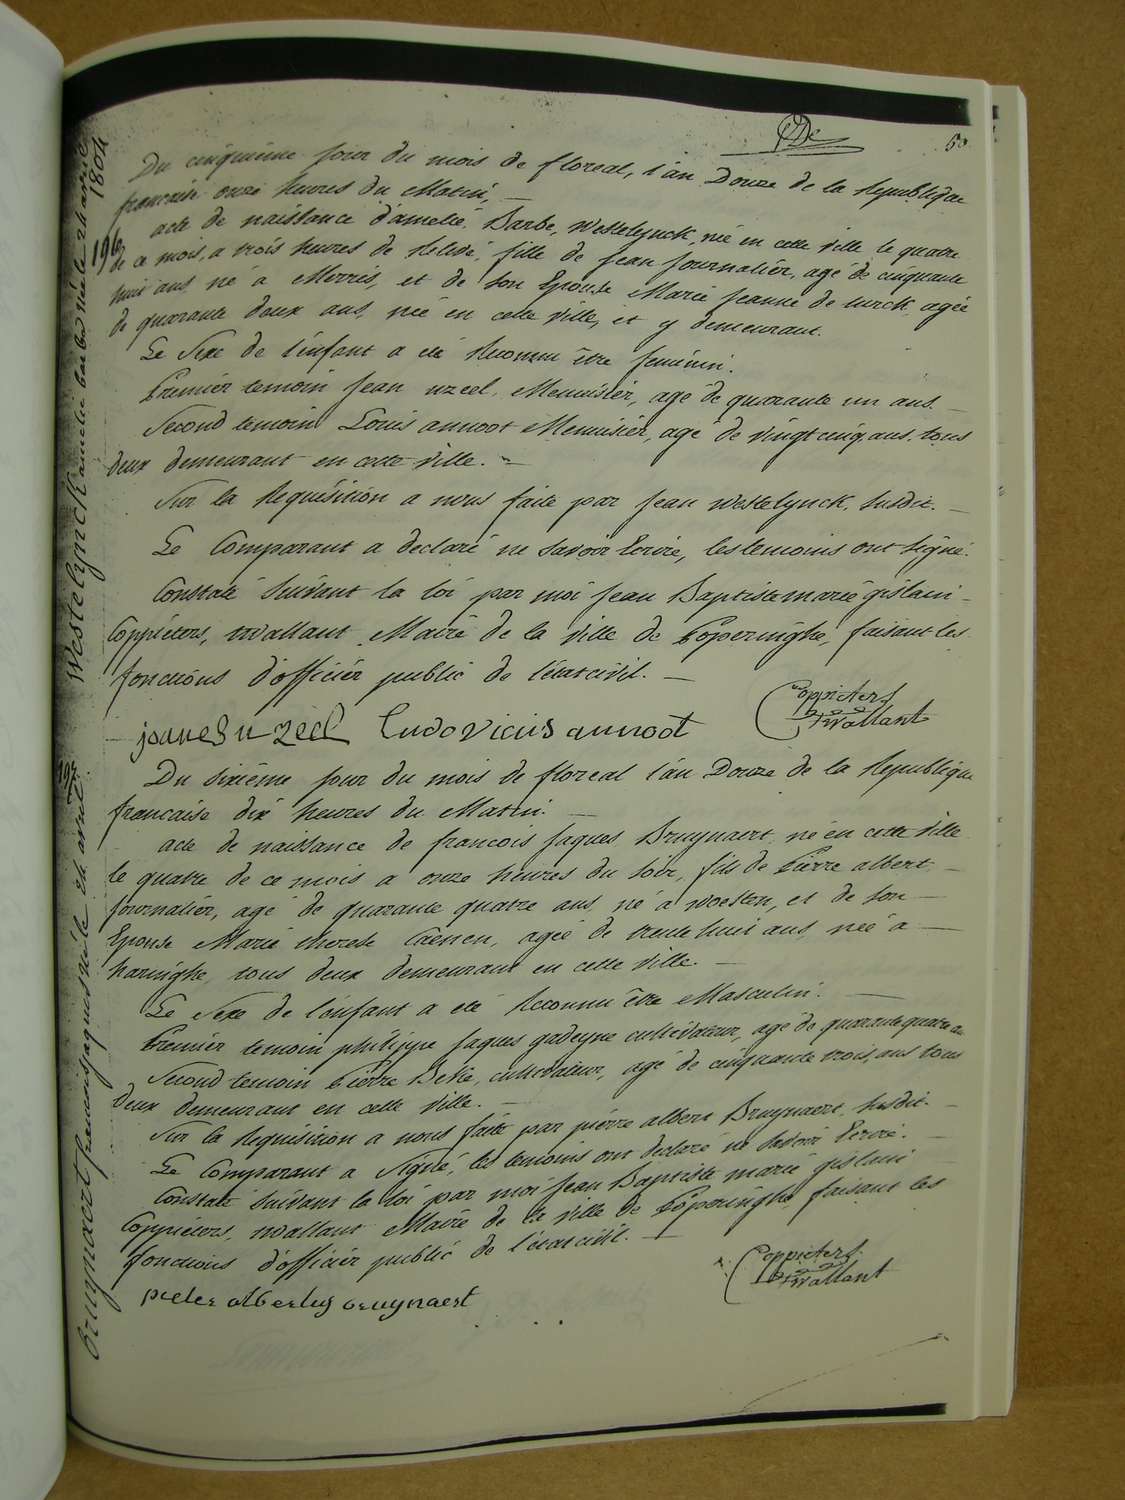 50
Du cinquième jour du mois de floreal, l'an Douze de la Republique
francaise onze heures du Matin,
196
acte de naissance d'amelie Barbe, Westelynck, née en cette ville le quatre
de ce mois, a trois heures de Relevé, fille de jean journalier, agé de cinquante
huit ans, né a Merris, et de son Epouse Marie jeanne de turck, agée
de quarante deux ans, née en cette ville, et y demeurant.
Le Sexe de l'enfant a eté Reconnu être feminin.
Premier temoin jean uzeel, Menuisier, agé de quarante un ans.
Second temoin Louis annoot Menuisier, agé de vingt cinq ans. tous
deux demeurant en cette ville.
Sur la Requisition a nous faite par jean westelynck, susdit.
Le Comparant a declaré ne savoir Ecrire, les temoins ont signé.
Constaté suivant la loi par moi jean Baptiste marie gislain
Coppieters, wallant Maire de la ville de Poperinghe, faisant les
fonctions d'officier public de l'état civil.
joanes uzeel Ludovicus annoot
Coppieters
Wallant
197
Du sixième jour du mois de floreal l'an Douze de la Republique
francaise dix heures du Matin.
acte de naissance de francois jaques Bruynaert, né en cette ville
le quatre de ce mois a onze heures du soir, fils de Pierre albert,
journalier, agé de quarante quatre ans, né a woesten, et de son
Epouse Marie therese Coenen, agée de trente huit ans, née a
haringhe, tous deux demeurant en cette ville.
Le Sexe de l'enfant a eté Reconnu être Masculin.
Premier temoin philippe jaques gadeyne cultivateur, agé de quarante quatre an
Second temoin Pierre Beke, cultivateur, agé de cinquante trois ans tous
deux demeurant en cette ville.
Sur la Requisition a nous faite par pierre albert Bruynaert, susdit.
Le Comparant a signé, les temoins ont declaré ne savoir Ecrire.
Constaté suivant la loi par moi jean Baptiste marie gislain
Coppieters, wallant Maire de la ville de Poperinghe, faisant les
fonctions d'officier public de l'état civil.
Coppieters
Wallant
pieter albertus bruynaert
Westelynck amelie barbe née le 24 avril
1804
bruynaert francois jaques né le 24 avril